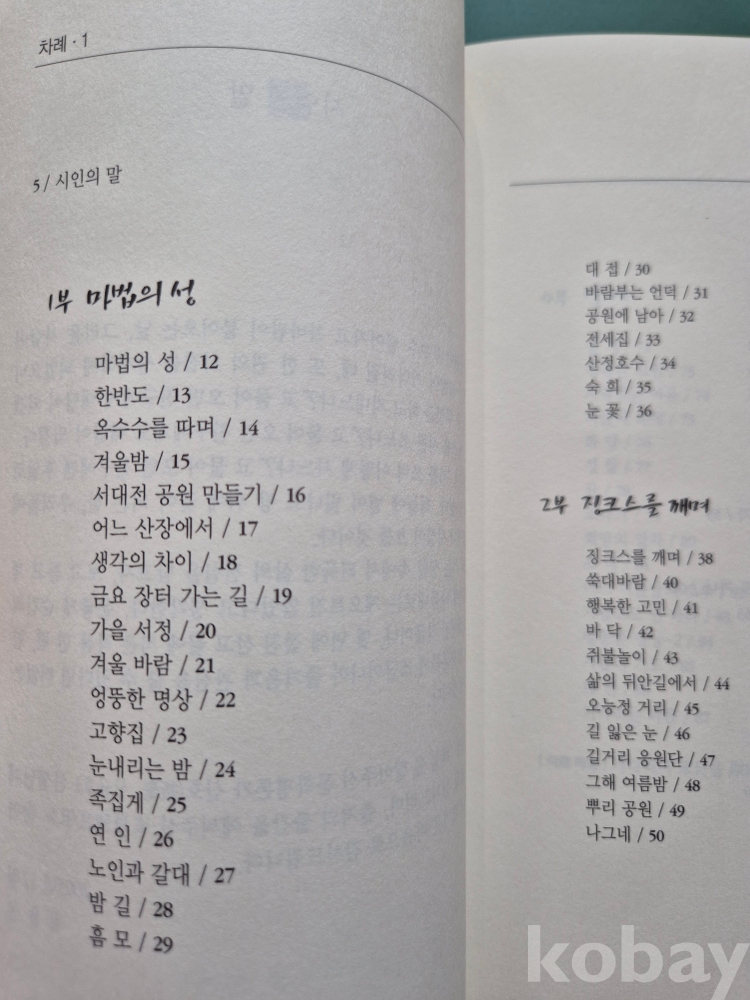 차례 · 1
5 / 시인의 말
1부 마법의 성
마법의 성 / 12
한반도 / 13
옥수수를 따며 / 14
겨울밤 / 15
서대전 공원 만들기 / 16
어느 산장에서 / 17
생각의 차이 / 18
금요 장터 가는 길 / 19
가을 서정 / 20
겨울 바람 / 21
엉뚱한 명상 / 22
고향집 / 23
눈내리는 밤 / 24
족집게 / 25
연 인 / 26
노인과 갈대 / 27
밤 길 / 28
흠 모 / 29
대 접 / 30
바람부는 언덕 / 31
공원에 남아 / 32
전세집 / 33
산정호수 / 34
숙 희 / 35
눈 꽃 / 36
2부 징크스를 깨며
징크스를 깨며 / 38
쑥대바람 / 40
행복한 고민 / 41
바 닥 / 42
쥐불놀이 / 43
삶의 뒤안길에서 / 44
오능정 거리 / 45
길 잃은 눈 / 46
길거리 응원단 / 47
그해 여름밤 / 48
뿌리 공원 / 49
나그네 / 50
kobay